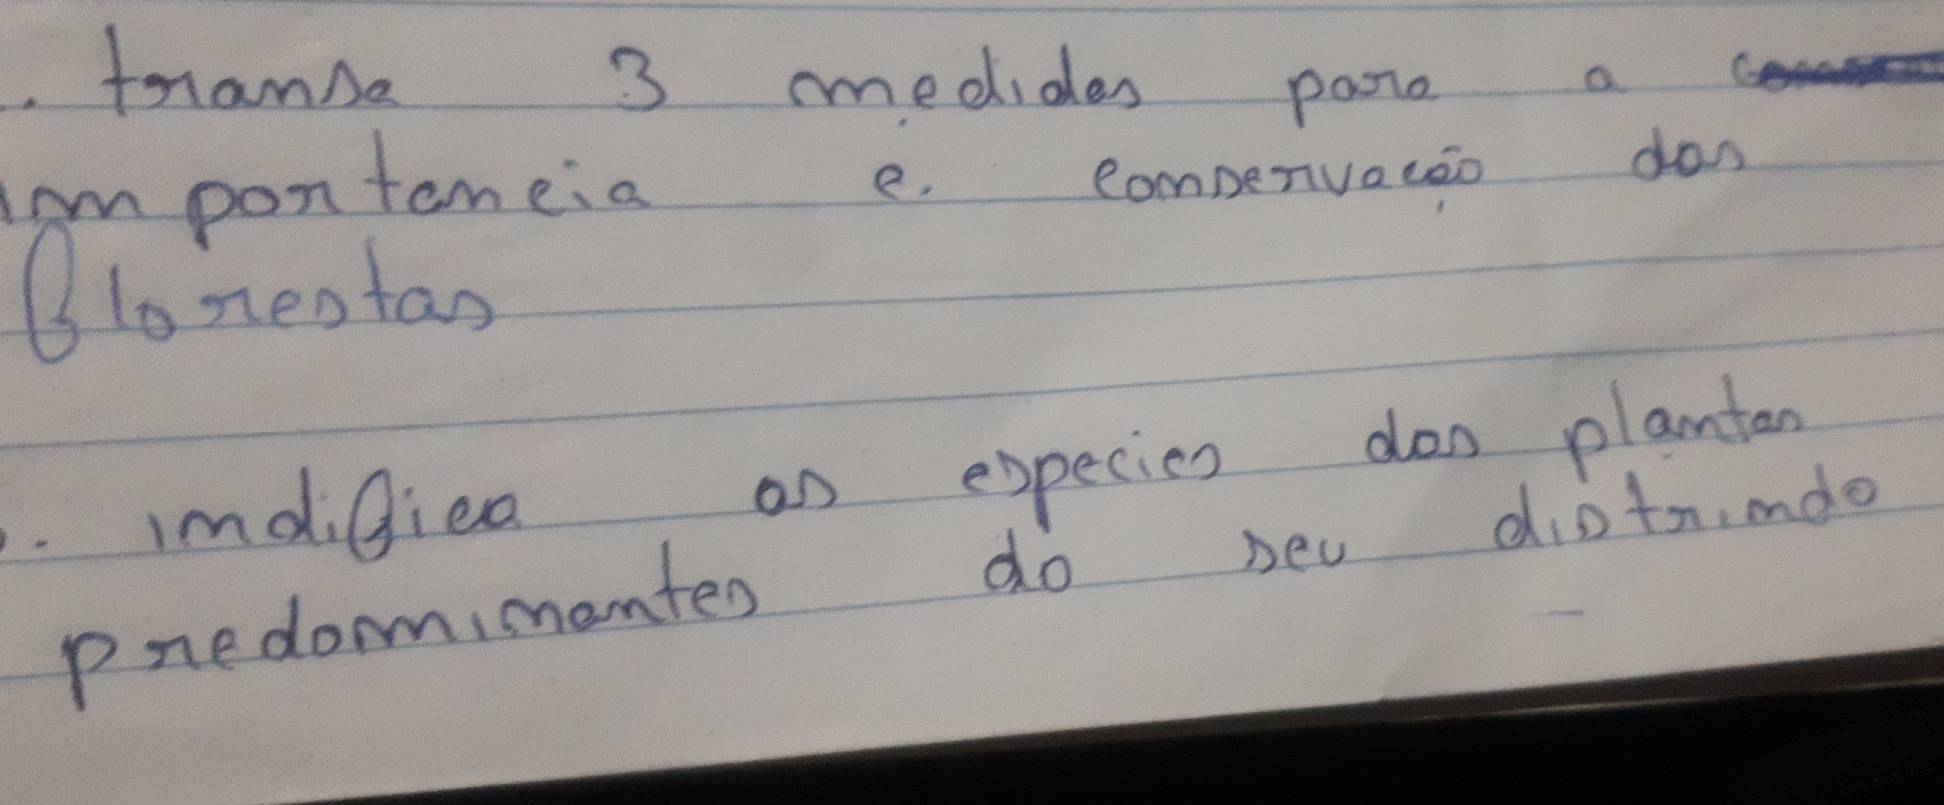 . transe 3 medidas para a
importancia e. conservação das
florestas
. indifica as especies das plantas
predominantes do seu distrindo